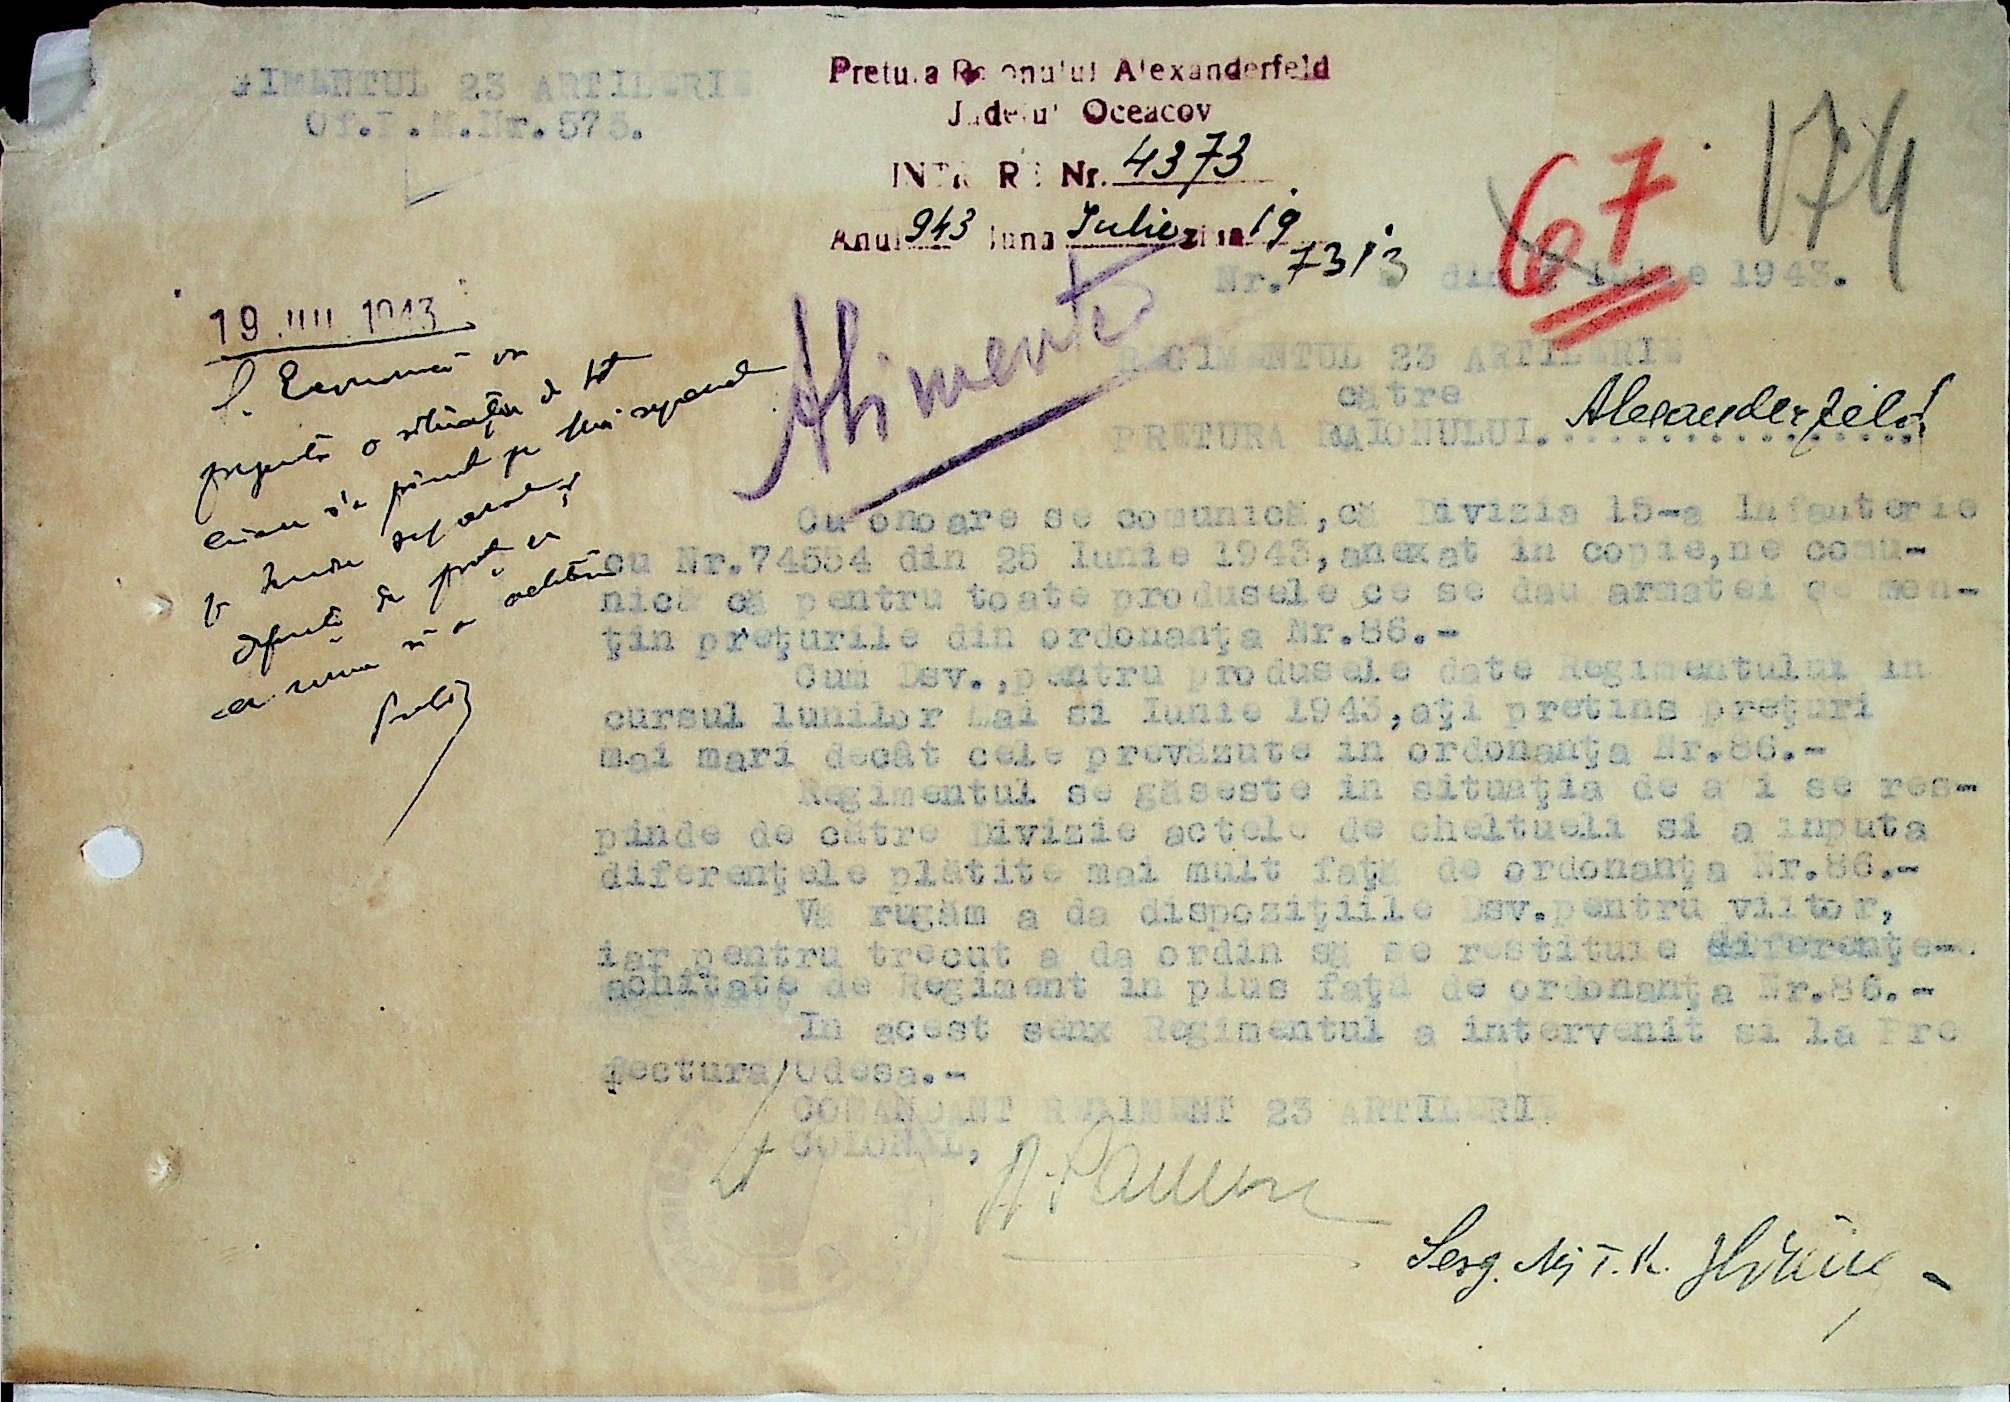 REGIMENTUL 23 ARTILERIE
Of.P.M.Nr.575.
Pretura Raionului Alexanderfeld
Județul Oceacov
INTRARE Nr. 4373
Anul 943 luna Iulie ziua 19
67
174
Nr. 7313 din Iulie 1943.
19 IUL 1943
Alimente
REGIMENTUL 23 ARTILERIE
către
PRETURA RAIONULUI.............. Alexanderfeld
Cu onoare se comunică,că Divizia 15-a Infanterie
cu Nr.74554 din 25 Iunie 1943,anexat in copie,ne comu-
nică că pentru toate produsele ce se dau armatei se men-
ţin preţurile din ordonanţa Nr.86.-
Cum Dsv.,pentru produsele date Regimentului in
cursul lunilor Mai si Iunie 1943,aţi pretins preţuri
mai mari decât cele prevăzute in ordonanţa Nr.86.-
Regimentul se găseste in situaţia de a i se res-
pinde de către Divizie actele de cheltueli si a inputa
diferenţele plătite mai mult faţă de ordonanţa Nr.86.-
Vă rugăm a da dispoziţiile Dsv.pentru viitor,
iar pentru trecut a da ordin să se restituie diferenţe-
achitate de Regiment in plus faţă de ordonanţa Nr.86.-
In acest senx Regimentul a intervenit si la Pre
fectura Odesa.-
COMANDANT REGIMENT 23 ARTILERIE
COLONEL,
Serg. Aj T.R.